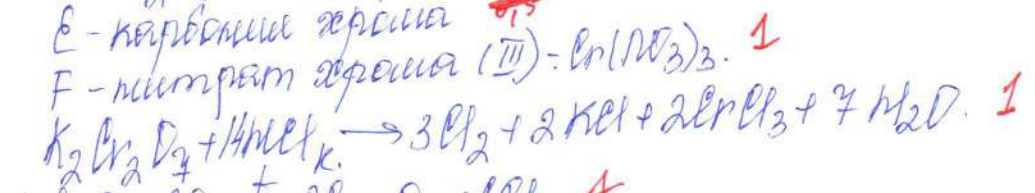 E - карбонил хрома 0,5
F - нитрат хрома (III) - Cr(NO3)3. 1
K2Cr2O7 + 14HClк. → 3Cl2 + 2KCl + 2CrCl3 + 7H2O. 1